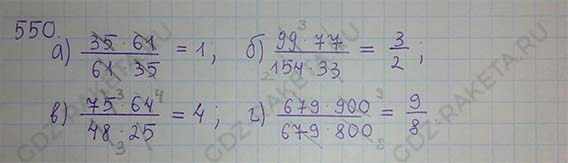 550.
а) 35 · 61 / 61 · 35 = 1; б) 99 · 77 / 154 · 33 = 3/2;
в) 75 · 64 / 48 · 25 = 4; г) 679 · 900 / 679 · 800 = 9/8
GDZ-RAKETA.RU